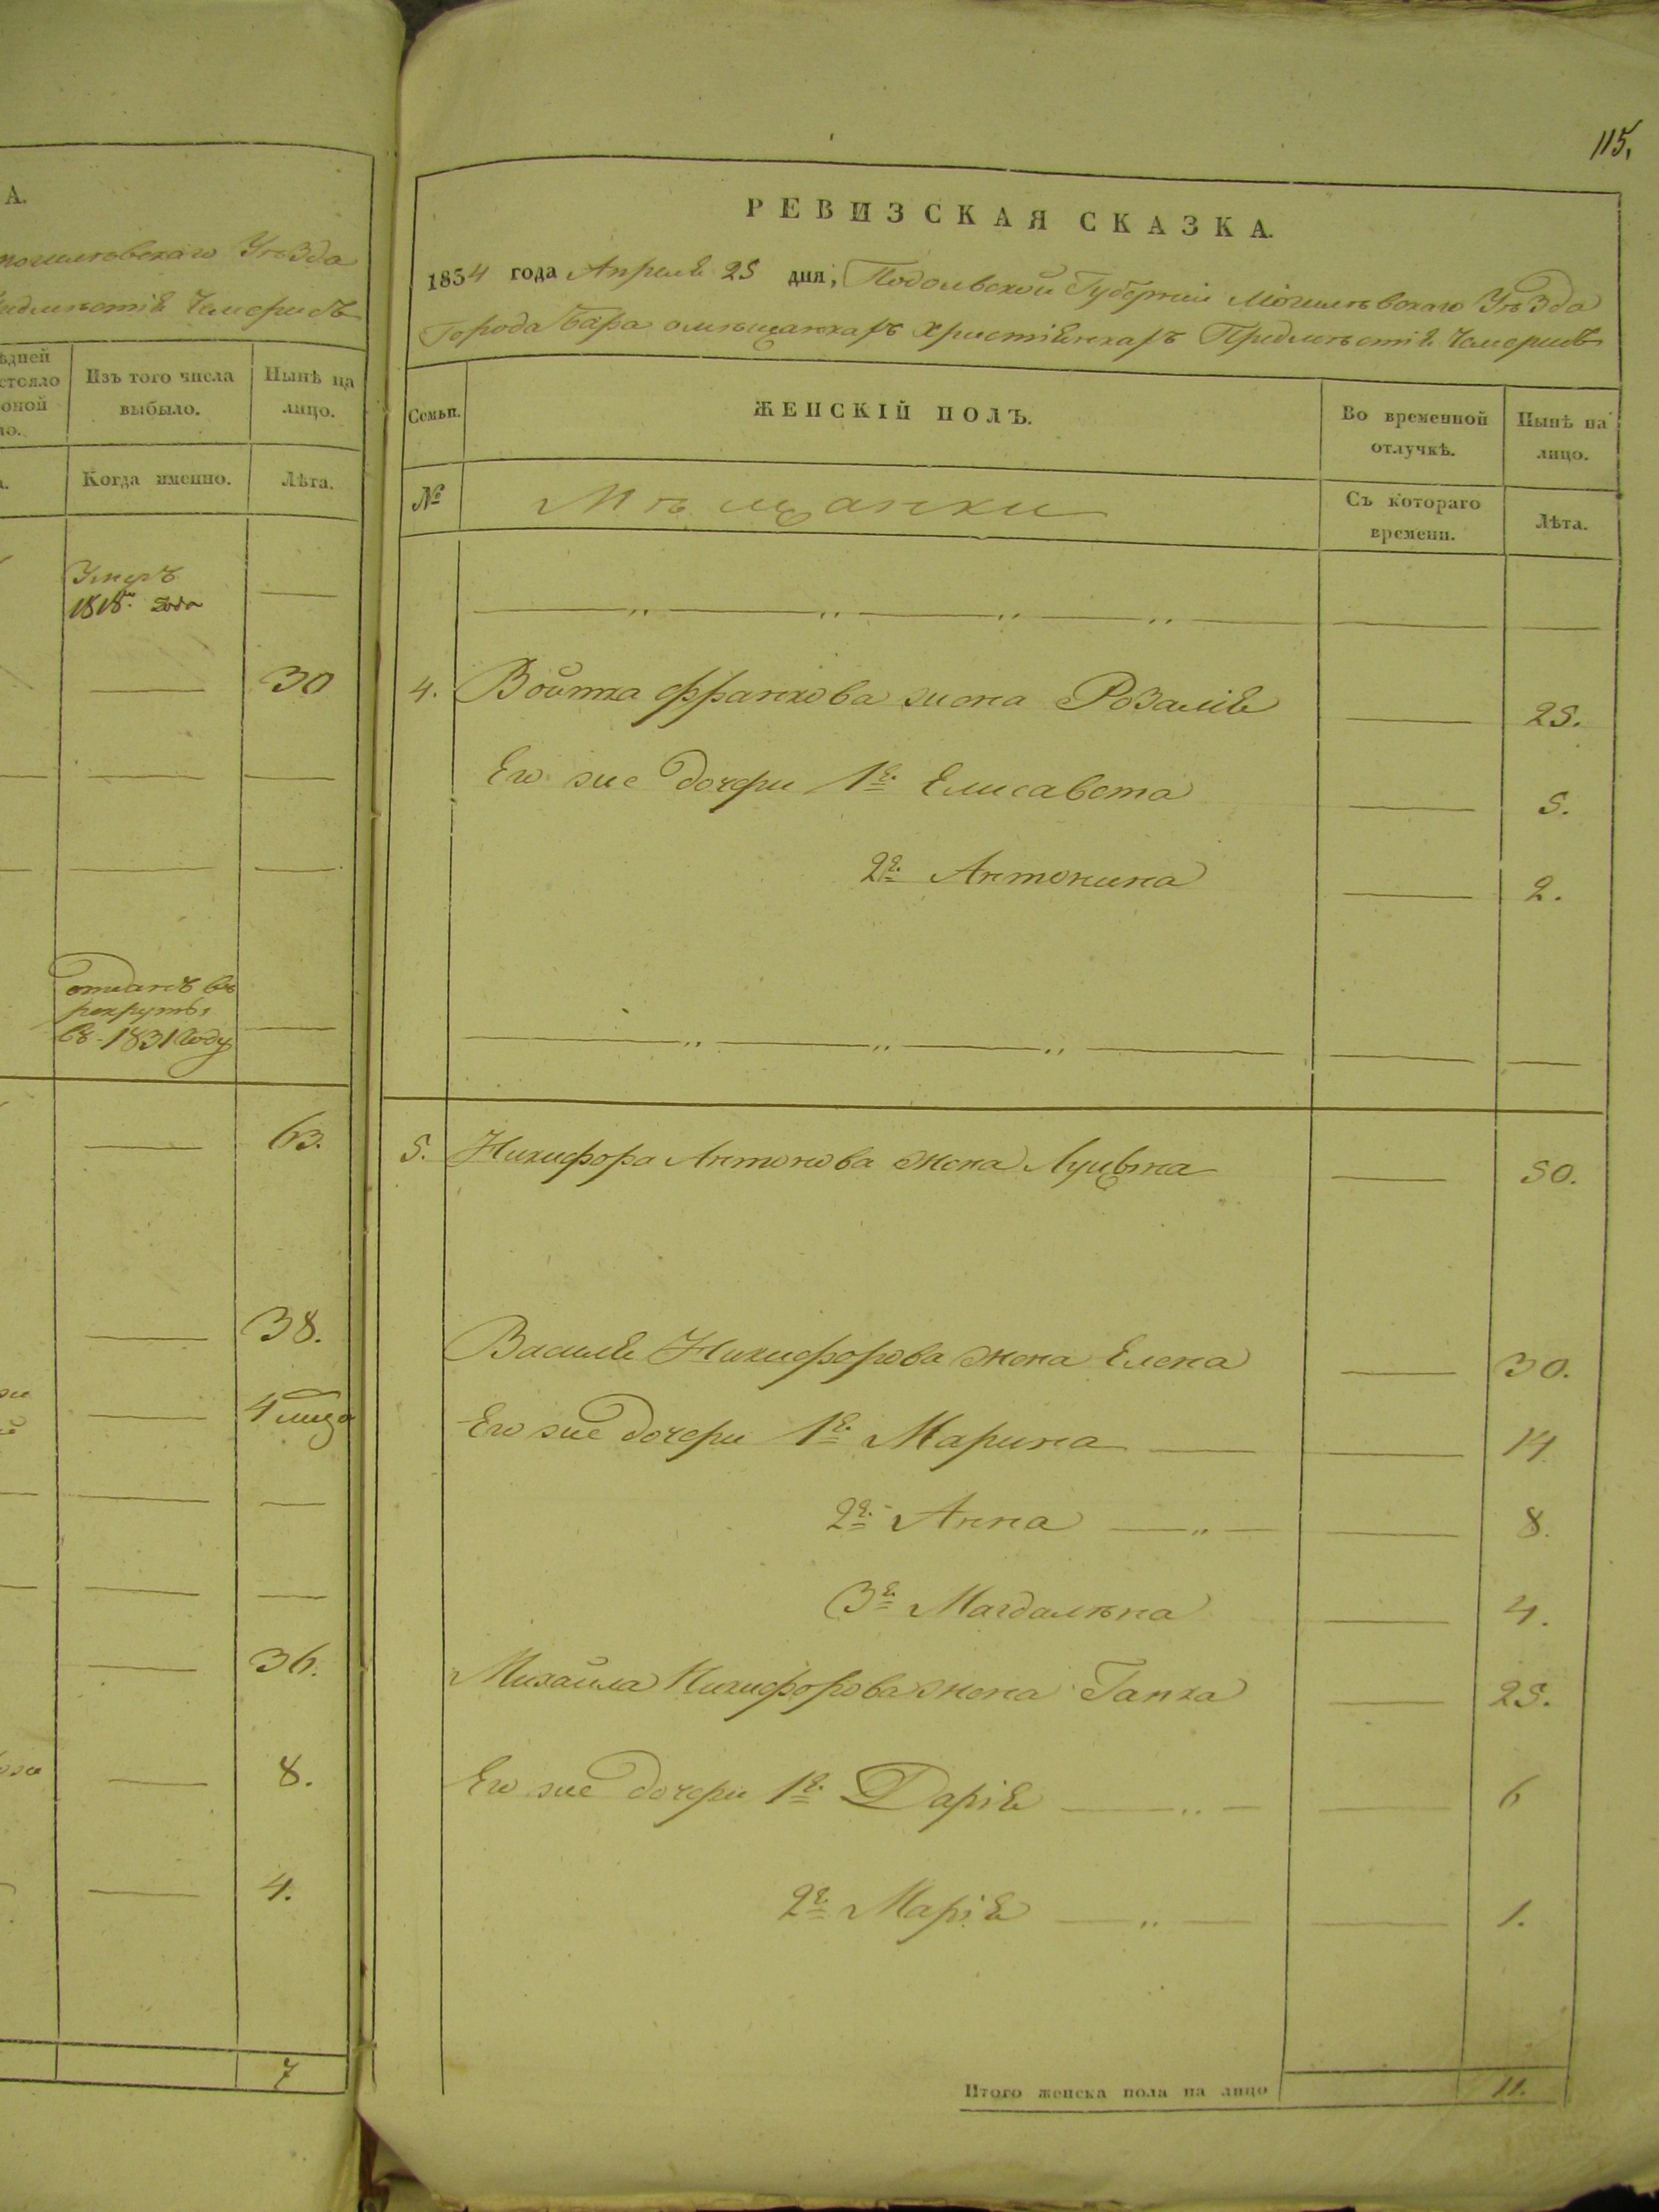 А.
Могилевскаго Уѣзда
Предмѣстія Чемерисъ
ѣдней
стояло
оной
ло.
Изъ того числа
выбыло.
Нынѣ на
лицо.
Когда именно.
Лѣта.
Умеръ
1818го года
30
отданъ въ
рекруты
въ 1831 году
63.
38.
4 мца
36.
8.
4.
7
115.
РЕВИЗСКАЯ СКАЗКА.
1834 года Апреля 25 дня, Подольской Губернии Могилевскаго Уѣзда
Города Бара о мѣщанкахъ Христіянкахъ Предмѣстія Чемерисъ
Семьи.
ЖЕНСКІЙ ПОЛЪ.
Во временной
отлучкѣ.
Нынѣ на
лицо.
№
Мѣщанки
Съ котораго
времени.
Лѣта.
4. Войтка Франкова жена Розалія 25.
Его же дочери 1я Елисавета 5.
2я Антонина 2.
5. Никифора Антонова жена Луцына 50.
Василя Никифорова жена Елена 30.
Его же дочери 1я Марина 14
2я Анна 8.
3я Магдалѣна 4.
Михайла Никифорова жена Гапка 25.
Его же дочери 1я Дарія 6
2я Марія 1.
Итого женска пола на лицо 11.